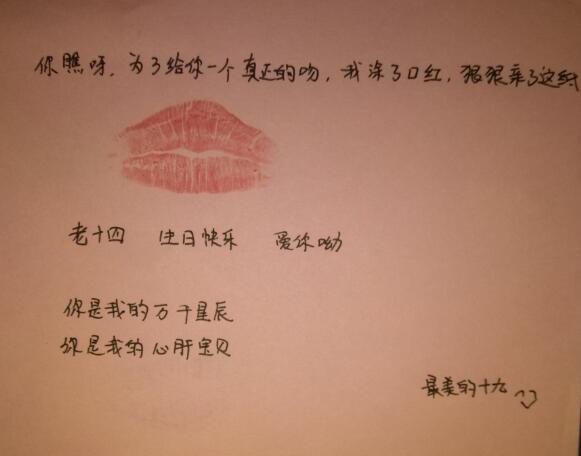 你瞧呀，为了给你一个真正的吻，我涂了口红，狠狠亲了这纸
老十四 生日快乐 爱你呦
你是我的万千星辰
你是我的心肝宝贝
最美的十九